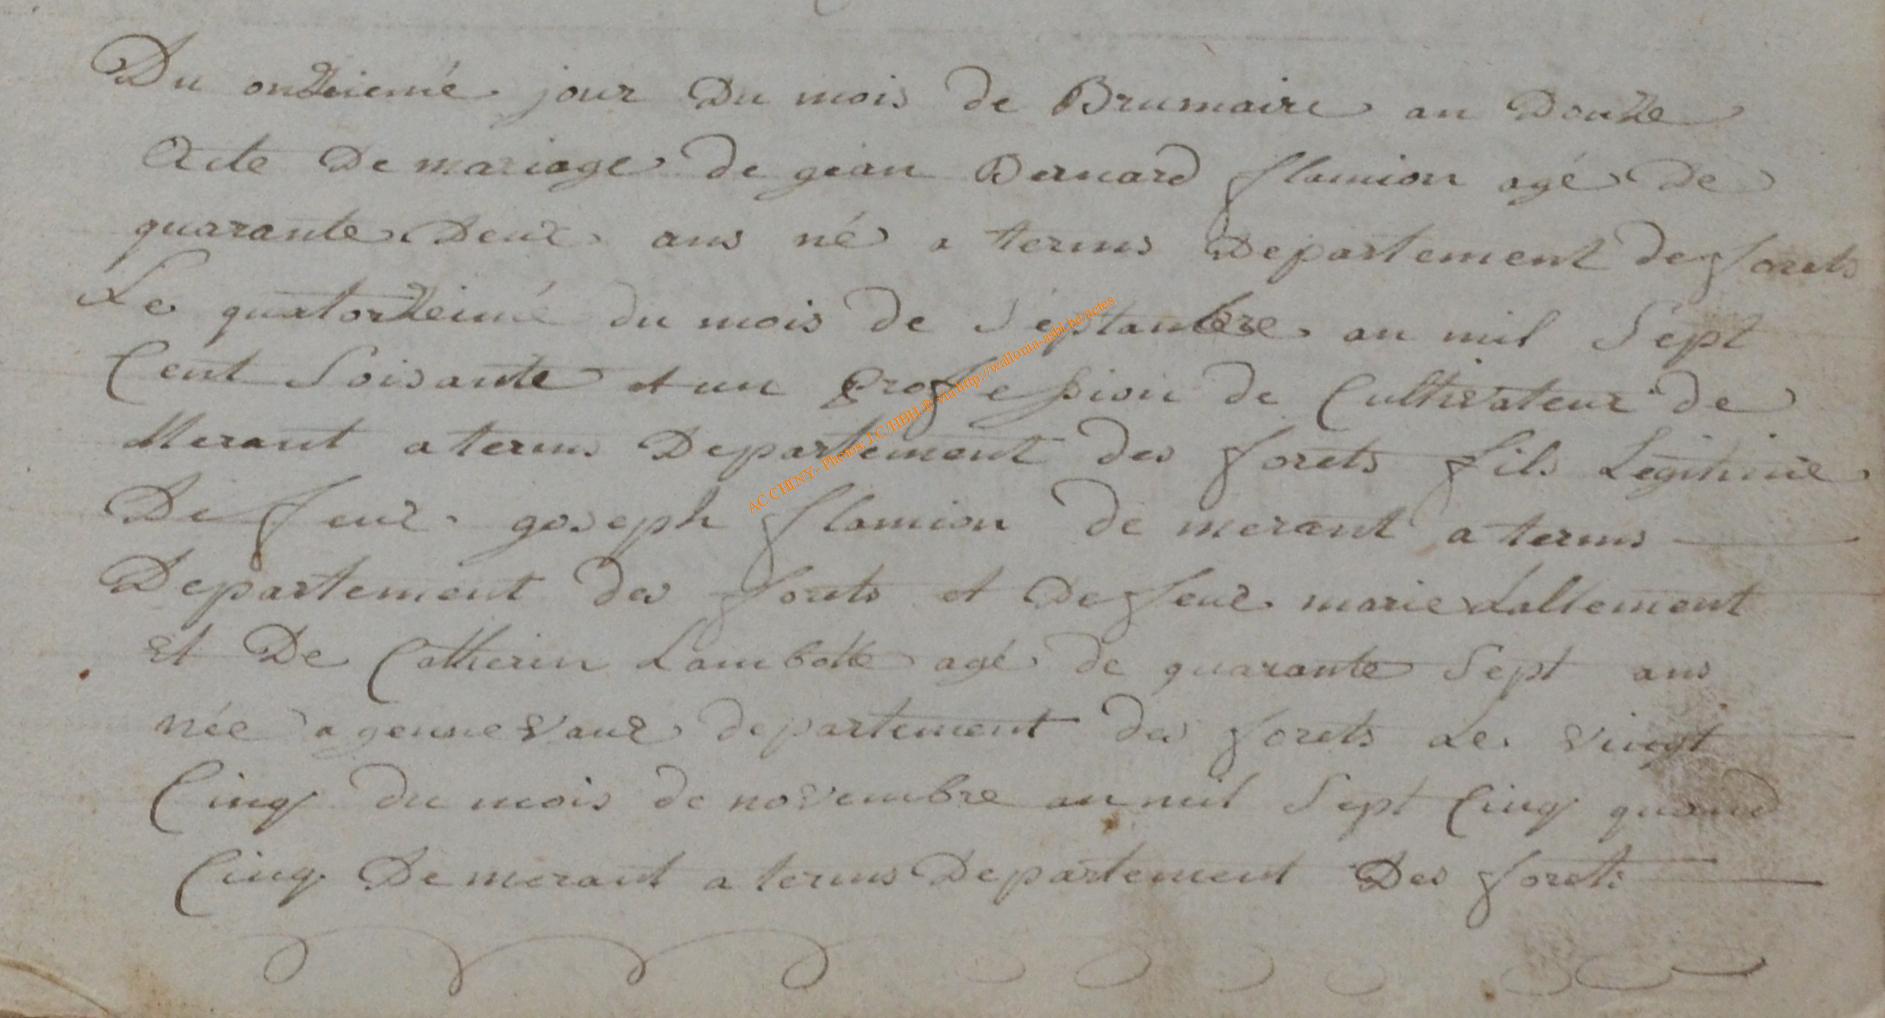 Du onzieme jour Du mois de Brumaire an Douze
Acte De mariage de gean Bernard flamion agé De
quarante Deux ans né a termes Departement des forets
Le quatorzeimé du mois de Septambre an mil Sept
Cent Soisante et un profession de Cultivateur de
Merant a termes Departement des forets fils Legitimé
De feux goseph flamion de merant a termes
Departement des forets et De feux marie Lallement
et De Catherin Lambotte agé de quarante Sept ans
née a gennevaux departement des forets Le vingt
Cinq du mois de novembre an mil Sept Cinq quand
Cinq De merant a termes Departement Des forets
AC CHINY - Photos J.C. HBH.fr via http://wallonia-asbl.be/actes